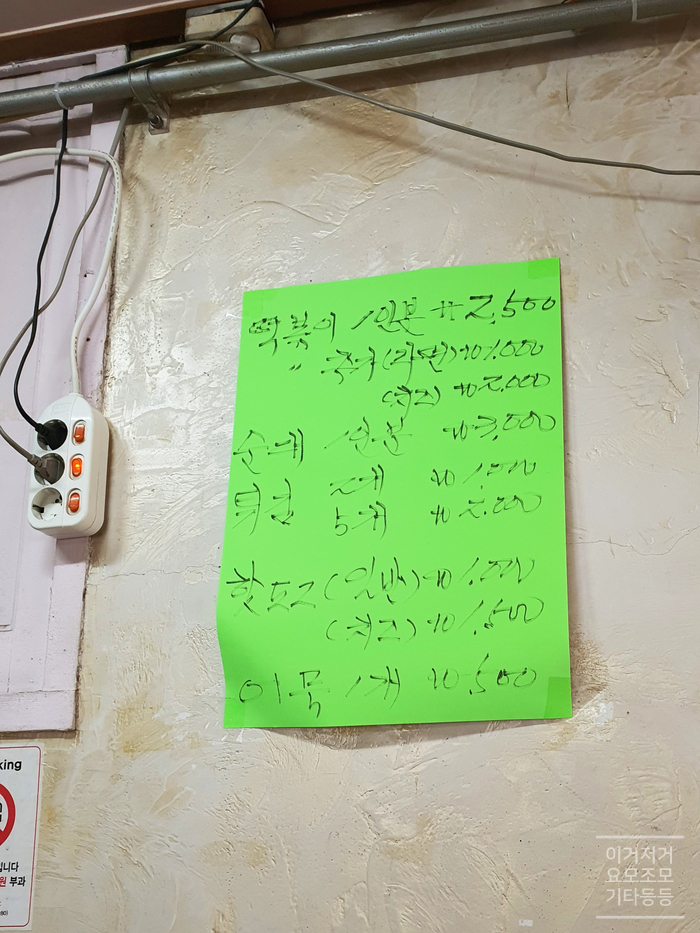 떡볶이 1인분 ₩2,500
〃 추가(라면) ₩1,000
(치즈) ₩2,000
순대 1인분 ₩3,000
튀김 2개 ₩1,000
5개 ₩2,000
핫도그(일반) ₩1,000
(치즈) ₩1,500
어묵 1개 ₩500
king
입니다
원 부과
이거저거
요모조모
기타등등